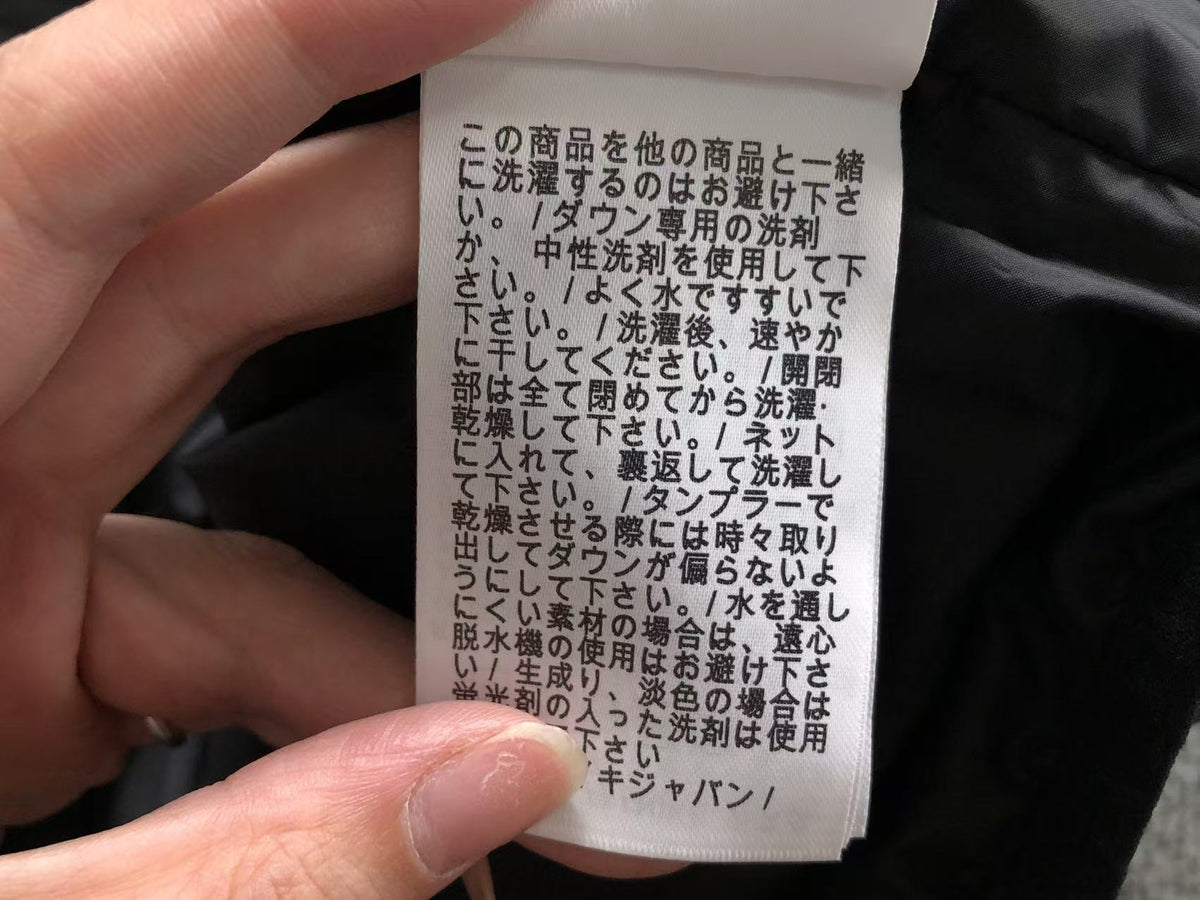 この商品を他の商品と一緒
に洗濯するのはお避け下さ
い。/ダウン専用の洗剤
か、中性洗剤を使用して下
さい。/よく水ですすいで
下さい。/洗濯後、速やか
に干してください。/開閉
部は全て閉めてから洗濯·
乾燥して下さい。/ネット
に入れて、裏返して洗濯し
て下さい。/タンプラーで
乾燥させる際には時々取り
出してダウンが偏らないよ
うにして下さい。/水を通し
にくい素材の場合は、遠心
脱水機の使用はお避け下さ
い/生成り、淡色の場合は
蛍光剤の入った洗剤は使用
下さい
キジャパン/